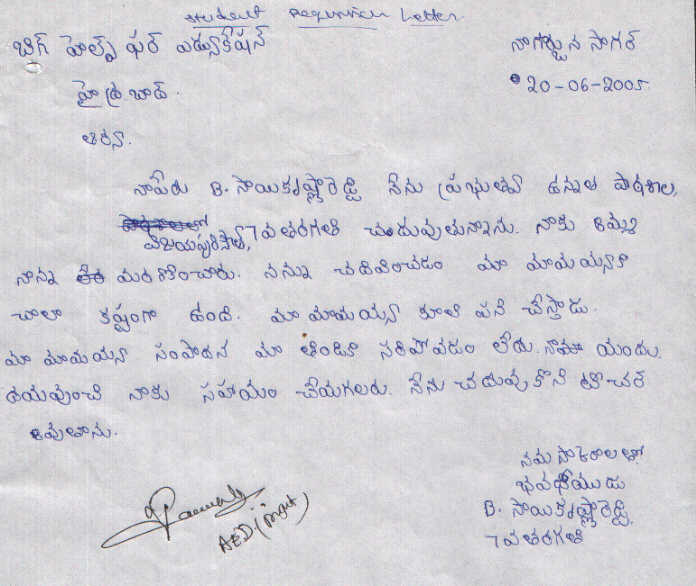 Student Requisition Letter
బిగ్ హెల్ప్ ఫర్ ఎడ్యుకేషన్
నాగార్జున సాగర్
హైద్రబాద్.
20-06-2005
నాపేరు B. సాయికృష్ణారెడ్డి నేను ప్రభుత్వ ఉన్నత పాఠశాల,
విజయపురిసౌత్, 7వతరగతి చదువుతున్నాను. నాకు అమ్మ
నాన్న మరణించారు. నన్ను చదివించడం మా మామయ్యకు
చాలా కష్టంగా ఉంది. మా మామయ్య కూలి పని చేస్తాడు.
మా మామయ్య సంపాదన మా తిండికి సరిపోవడం లేదు. యందు
దయవుంచి నాకు సహాయం చేయగలరు. నేను చదువుకొని టీచర్
అవుతాను.
నమస్కారాలతో
భవదీయుడు
B. సాయికృష్ణారెడ్డి
7వతరగతి